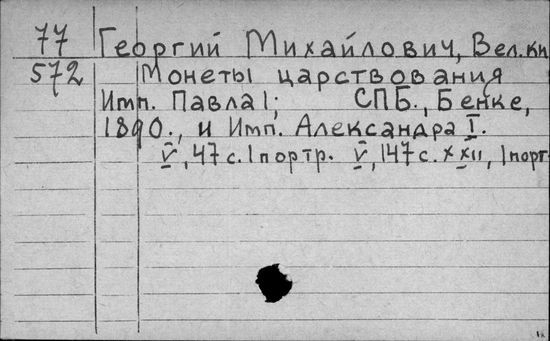 77 Георгий Михайлович, Вел. кн
572 Монеты царствования
Имп. Павла I; СПБ., Бенке,
1890., и Имп. Александра I.
V, 47 с. 1 портр. V, 147 с. XXII, 1 порт